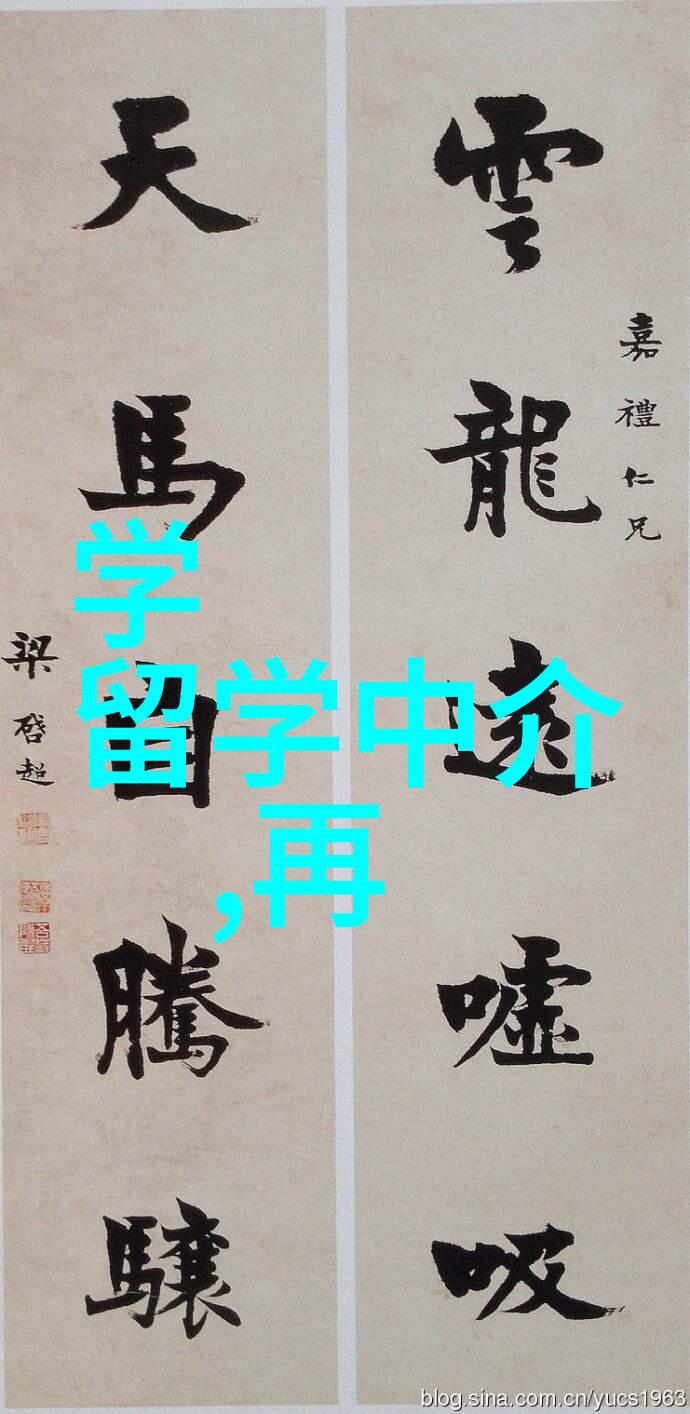 嘉禮仁兄
雲龍遠噓吸
天馬自騰驤
梁啓超
学
留学中介
,再
blog.sina.com.cn/yucs1963